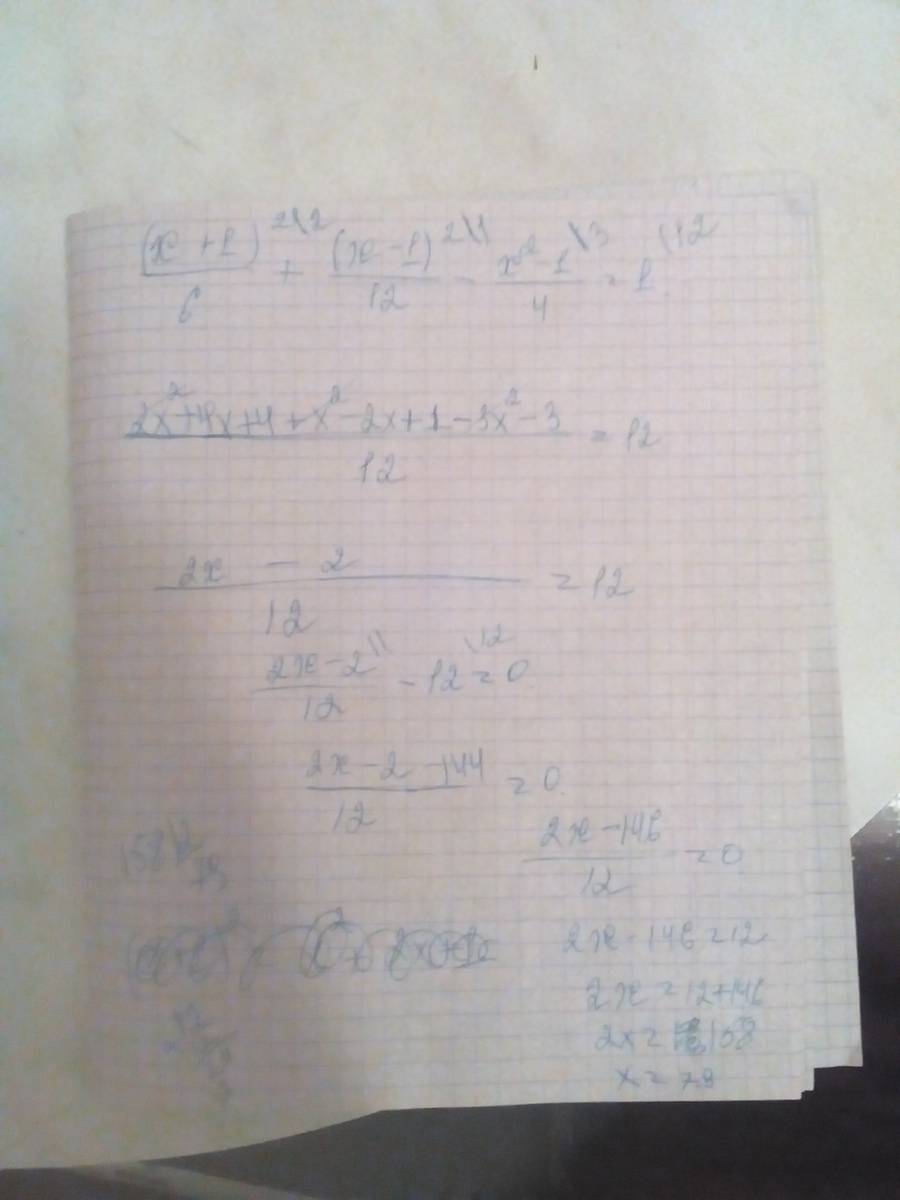 (x+1)^2\2 / 6 + (x-1)^2\1 / 12 - x^2-1\3 / 4 = 1\12
2x^2+4x+4+x^2-2x+1-3x^2-3 / 12 = 12
2x - 2 / 12 = 12
2x-2\1 / 12 - 12\12 = 0
2x-2-144 / 12 = 0
2x-146 / 12 = 0
2x-146=12
2x=12+146
2x=158
x=79